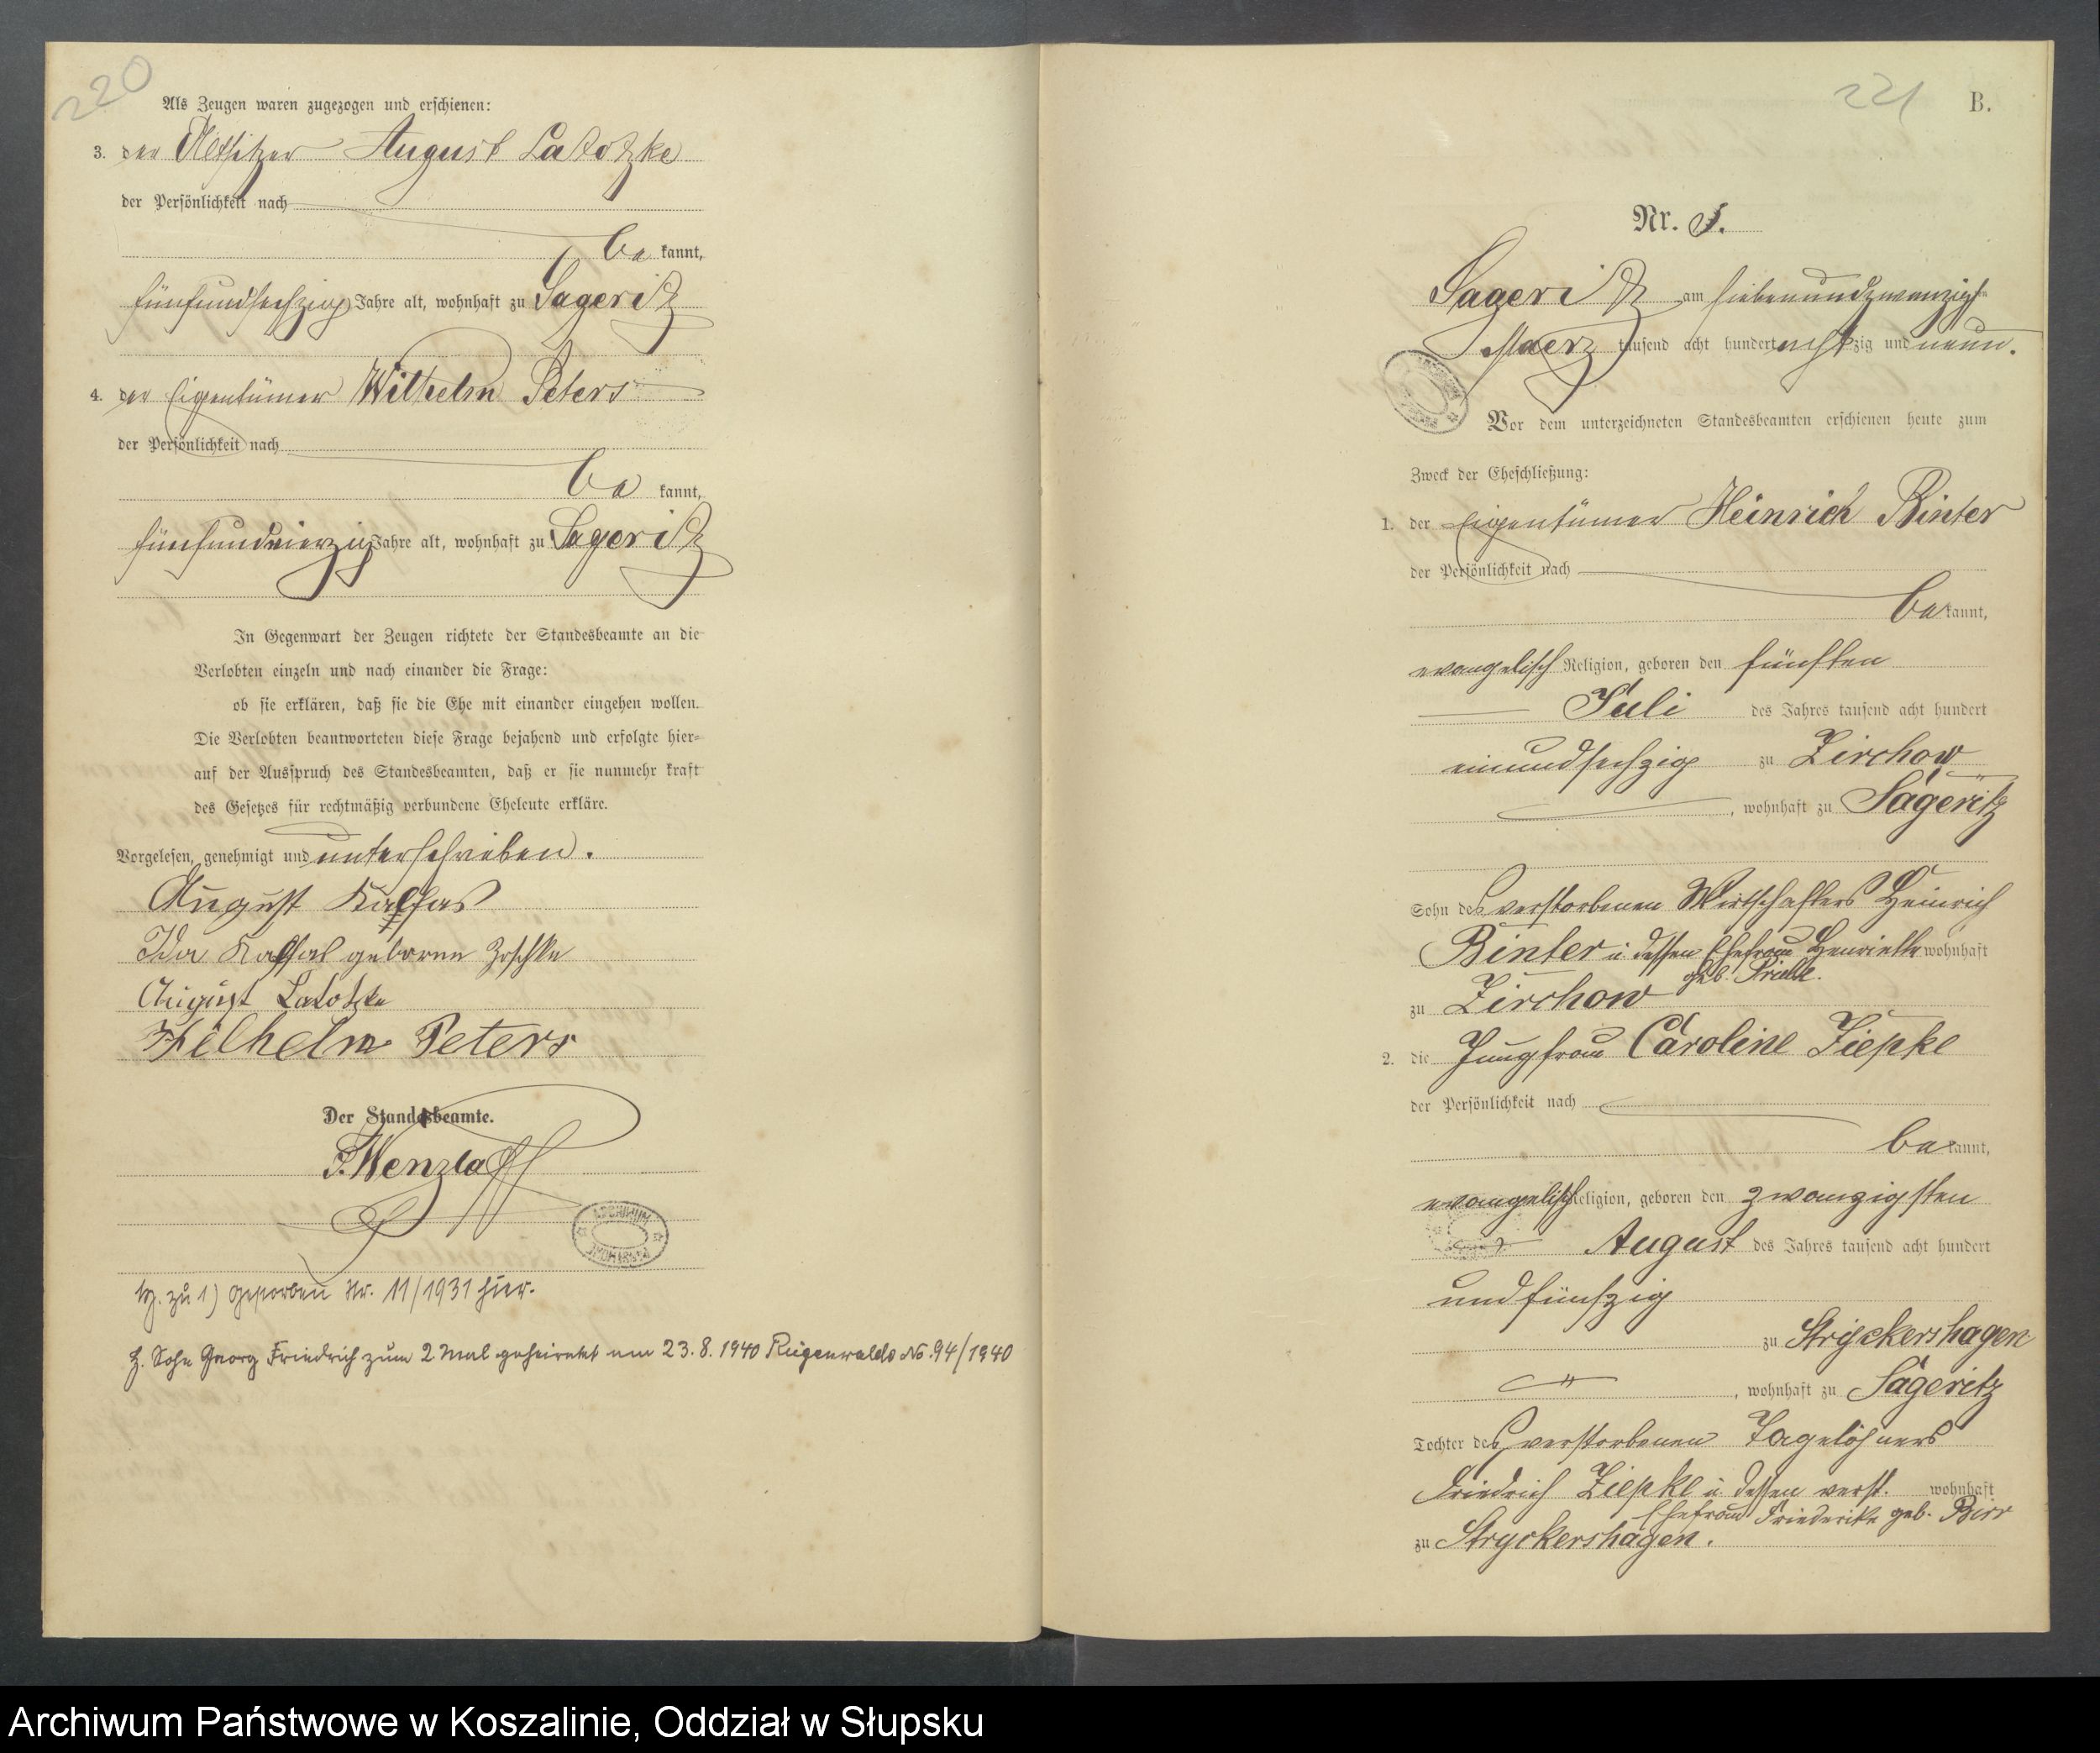 220
Als Zeugen waren zugezogen und erschienen:
3. der Altsitzer August Latotzke
der Persönlichkeit nach
be kannt,
fünfundsechzig Jahre alt, wohnhaft zu Sageritz
4. der Eigentümer Wilhelm Peters
der Persönlichkeit nach
be kannt,
fünfundvierzig Jahre alt, wohnhaft zu Sageritz
In Gegenwart der Zeugen richtete der Standesbeamte an die
Verlobten einzeln und nach einander die Frage:
ob sie erklären, daß sie die Ehe mit einander eingehen wollen.
Die Verlobten beantworteten diese Frage bejahend und erfolgte hier-
auf der Ausspruch des Standesbeamten, daß er sie nunmehr kraft
des Gesetzes für rechtmäßig verbundene Eheleute erkläre.
Vorgelesen, genehmigt und unterschrieben.
August
Ida geborene
August Latotzke
Wilhelm Peters
Der Standesbeamte.
F. Wenzlaff
ARCHIWUM
zu 1) gestorben Nr. 11/1931 hier.
Sohn Georg Friedrich zum 2 Mal geheiratet am 23.8.1940 Rügenwalde No. 94/1940
221 B.
Nr.
Sageritz am siebenundzwanzigsten
Maerz tausend acht hundert achtzig und neun.
Vor dem unterzeichneten Standesbeamten erschienen heute zum
Zweck der Eheschließung:
1. der Eigentümer Heinrich Binter
der Persönlichkeit nach
be kannt,
evangelisch Religion, geboren den fünften
Juli des Jahres tausend acht hundert
einundsechzig zu Zirchow
, wohnhaft zu Sageritz
Sohn des verstorbenen Wirtschafters Heinrich
Binter u. dessen Ehefrau Henriette wohnhaft
geb.
zu Zirchow
2. die Jungfrau Caroline Ziepke
der Persönlichkeit nach
be kannt,
evangelisch Religion, geboren den zwanzigsten
August des Jahres tausend acht hundert
und fünfzig
zu Stryckershagen
, wohnhaft zu Sageritz
Tochter des verstorbenen Tagelöhners
Friedrich Ziepke u. dessen verst. wohnhaft
Ehefrau Friederike geb. Birr
zu Stryckershagen.
Archiwum Państwowe w Koszalinie, Oddział w Słupsku